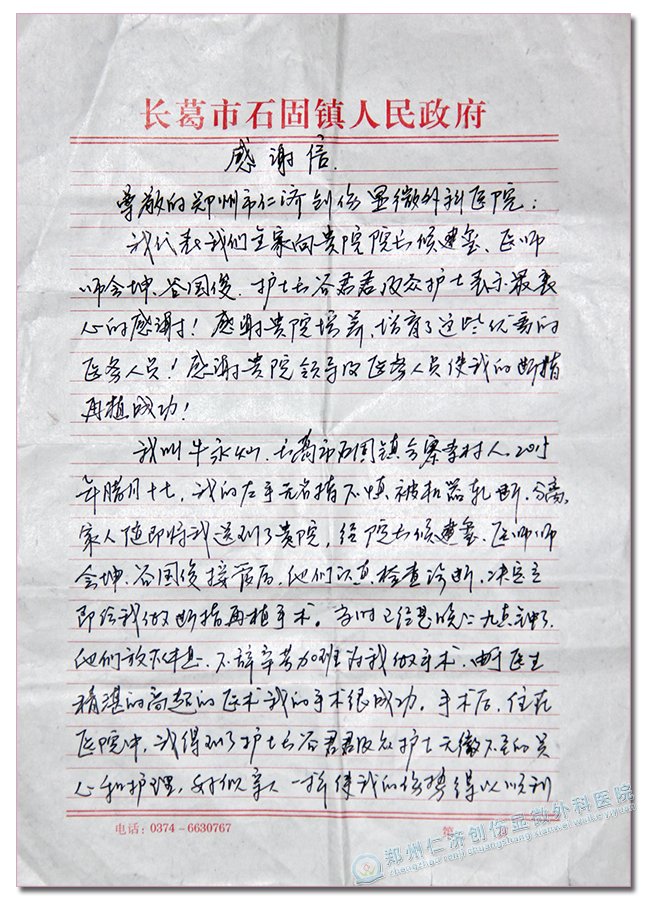 长葛市石固镇人民政府
感谢信.
尊敬的郑州市仁济创伤显微外科医院:
我代表我们全家向贵院院长候建玺、医师
师会坤、谷国俊、护士长谷君君及众护士表示最衷
心的感谢!感谢贵院培养、培育了这些优秀的
医务人员!感谢贵院领导及医务人员使我的断指
再植成功!
我叫牛永灿,长葛市石固镇合寨李村人,2015
年腊月十七,我的左手无名指不慎被机器轧断,分离,
家人随即将我送到了贵院,给院长候建玺、医师师
会坤、谷国俊接诊后,他们认真检查诊断,决定立
即给我做断指再植手术。当时已经是晚上九点钟了,
他们放下休息,不辞辛苦加班为我做手术,由于医生
精湛的高超的医术我的手术很成功。手术后,住在
医院中,我得到了护士长谷君君及众护士无微不至的关
心和护理,对似亲人一样使我的伤势得以顺利
电话:0374-6630767
第
郑州仁济创伤显微外科医院
zhengzhou renji chuangshang xianwei waike yiyuan